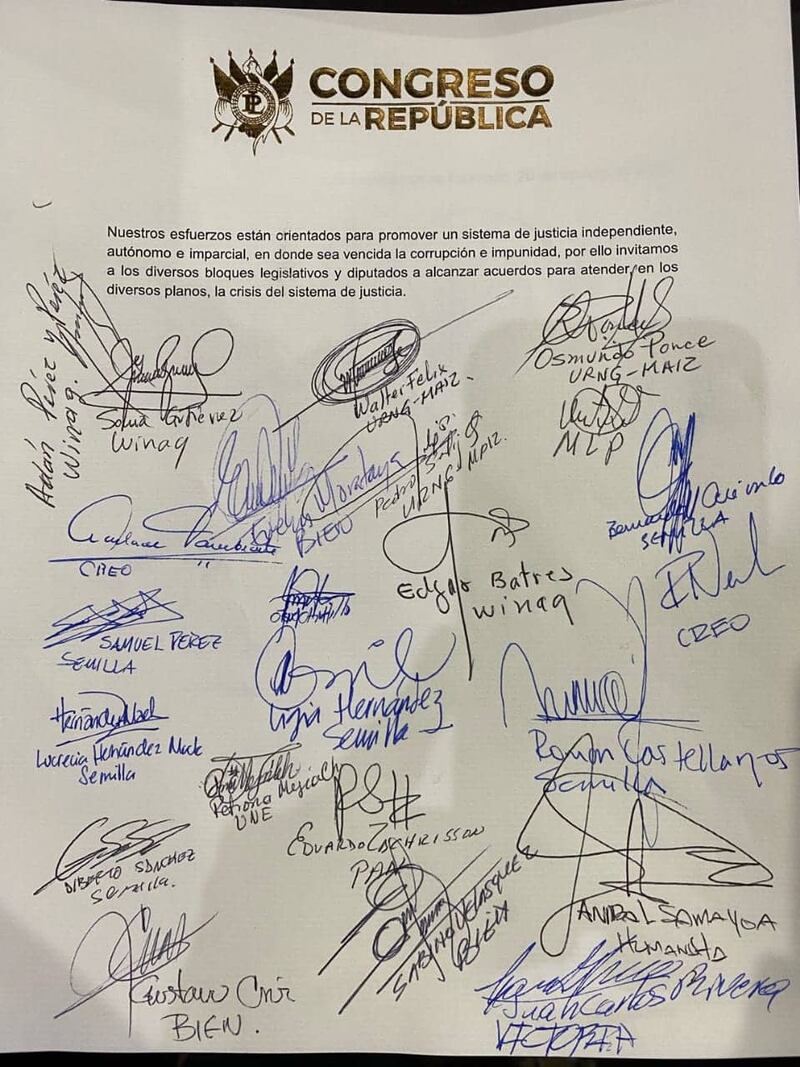 CONGRESO
DE LA REPÚBLICA
Nuestros esfuerzos están orientados para promover un sistema de justicia independiente,
autónomo e imparcial, en donde sea vencida la corrupción e impunidad, por ello invitamos
a los diversos bloques legislativos y diputados a alcanzar acuerdos para atender, en los
diversos planos, la crisis del sistema de justicia.
Adán Pérez y Pérez
Winaq.
Sonia Gutiérrez
Winaq
Walter Felix
URNG-MAIZ.
Osmundo Ponce
URNG-MAIZ
MLP
Pedro
URNG-MAIZ.
Morataya
BIEN
SEMILLA
CREO
Edgar Batres
Winaq
CREO
SAMUEL PEREZ
SEMILLA
Ligia Hernández
Semilla
Lucrecia Hernández Mack
Semilla
Román Castellanos
Semilla
Petrona Mejía
UNE
EDUARDO ZACHRISSON
PAN
DIBERTO SÁNCHEZ
Semilla.
SABINO VELASQUEZ
BIEN
ANIBAL SAMAYOA
HUMANISTA
Gustavo Cruz
BIEN.
Juan Carlos Rivera
VICTORIA